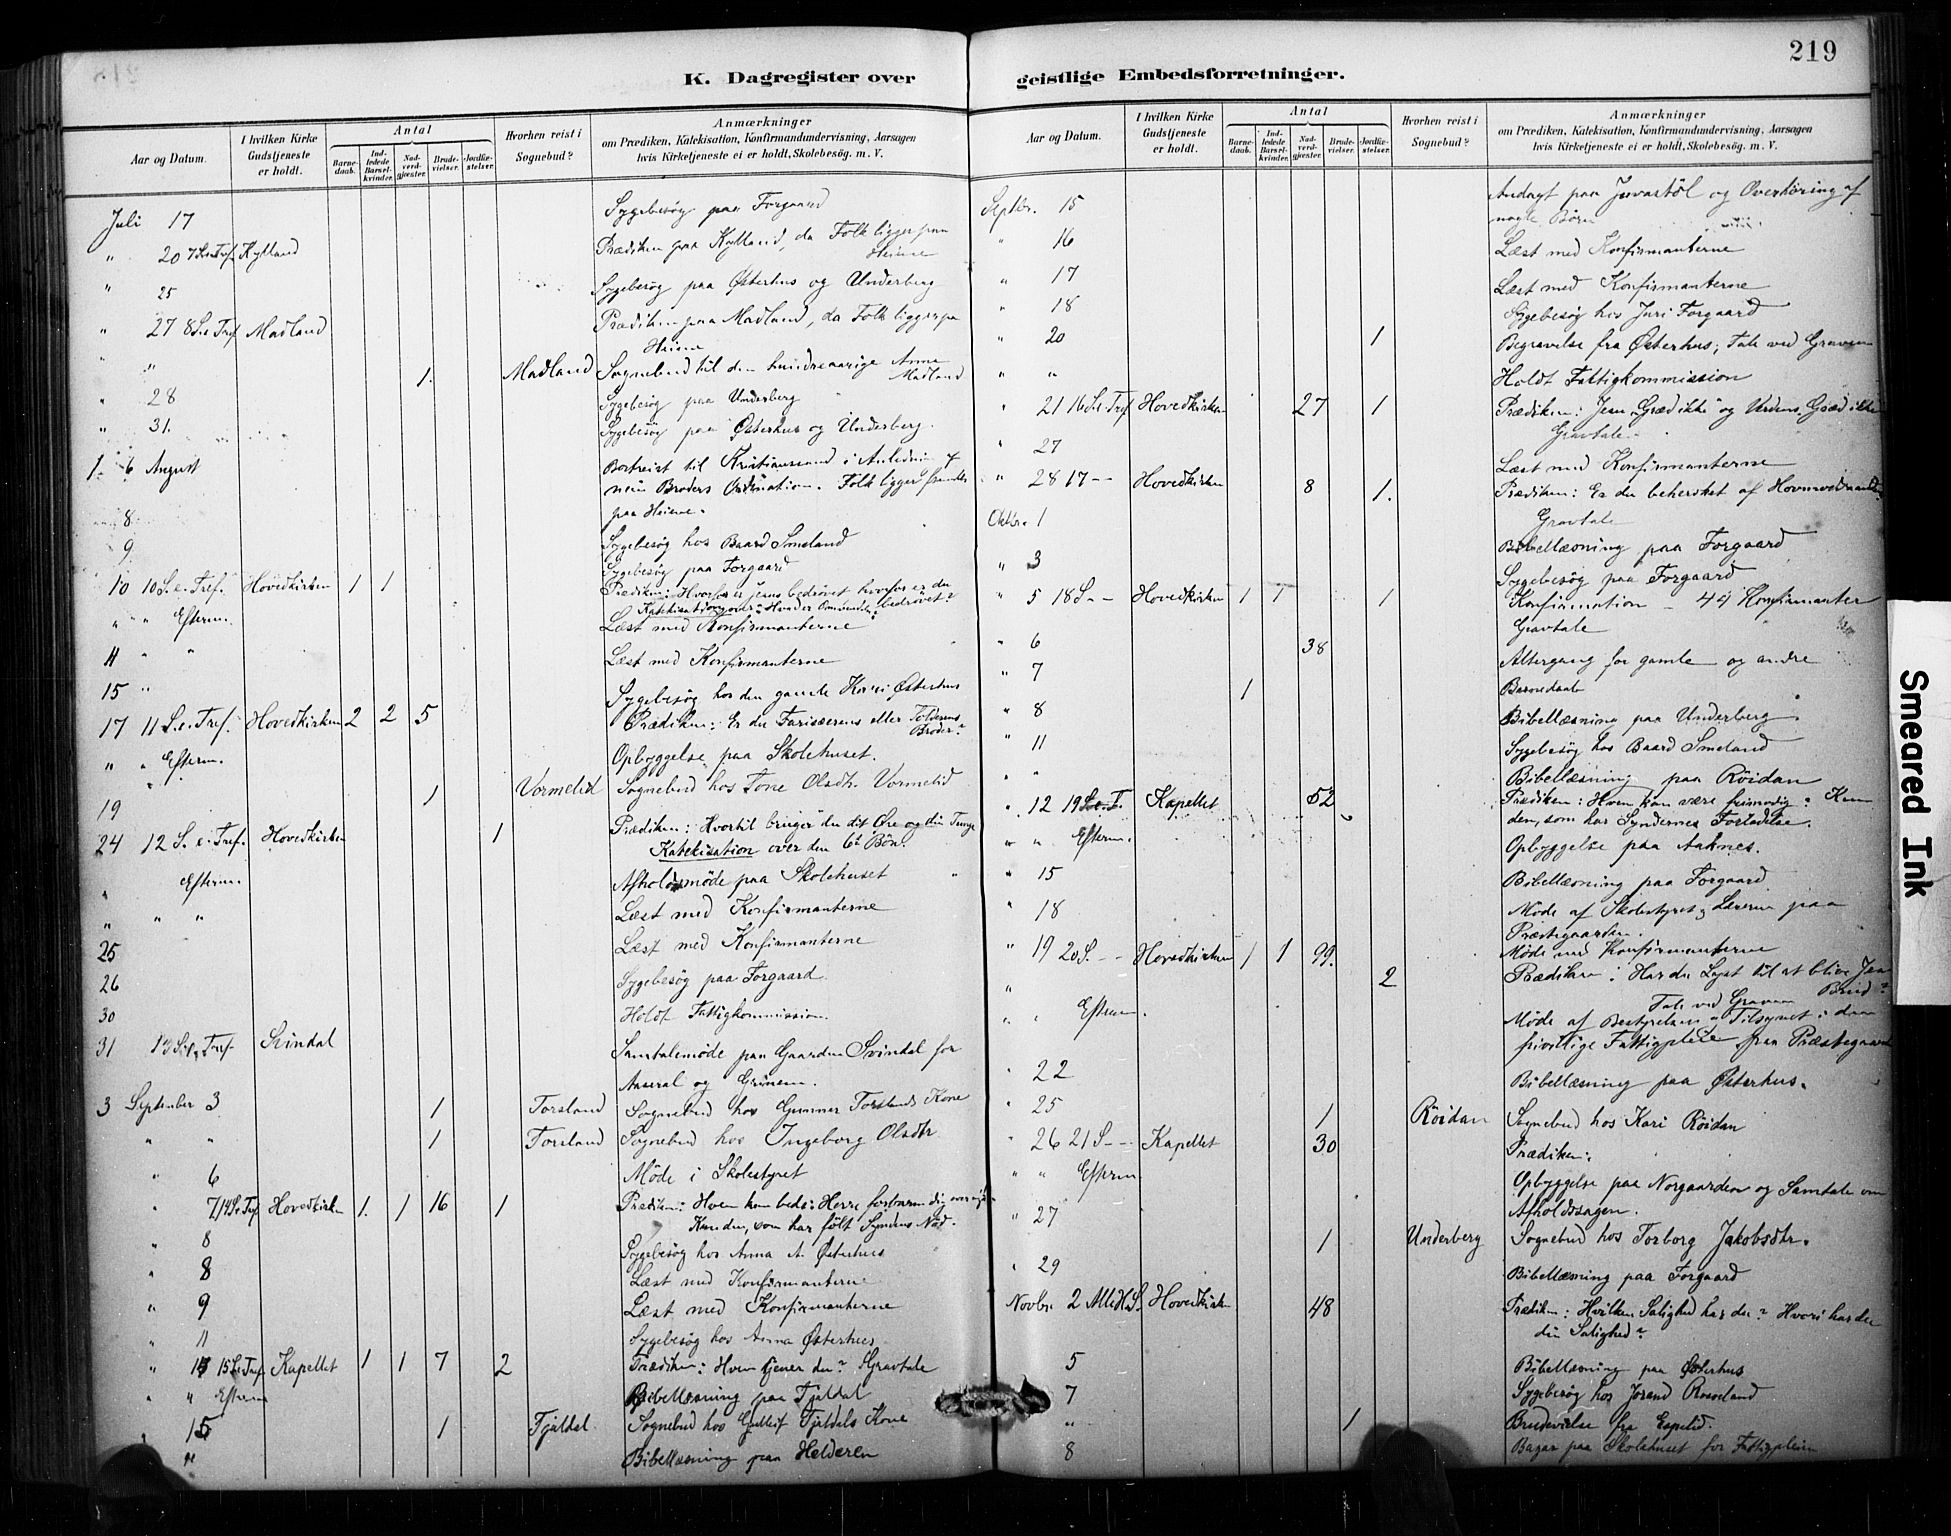 219
K. Dagregister over
Aar og Datum.
I hvilken Kirke Gudstjeneste er holdt.
Antal
Barnedaab.
Indledede Barselkvinder.
Nadverdgjester.
Brudevielser.
Jordfæstelser.
Hvorhen reist i Sognebud?
Anmærkninger
om Prædiken, Katekisation, Konfirmandundervisning, Aarsagen
hvis Kirketjeneste ei er holdt, Skolebesøg. m. V.
Juli 17 Sygebesøg paa Forgaard
" 20 7 S. e. Tref. Kylland Prædiken paa Kylland, da Folk ligger paa
Heiene
" 25 Sygebesøg paa Østerhus og Underberg
" 27 8 S. e. Tref Madland Prædiken paa Madland, da Folk ligger pa
Heiene
" " 1. Madland Sognebud til den hundreaarige Anne
Madland
" 28 Sygebesøg paa Underberg
" 31. Sygebesøg paa Østerhus og Underberg.
1. 6 August Bortreist til Kristianssand i Anledning af
min Broders Ordination. Folk ligger fremdeles
paa Heiene.
8 Sygebesøg hos Baard Smeland
9 Sygebesøg paa Forgaard
10 10 S. e. Tref. Hovedkirken 1 1 Prædiken: Hvorfor er Jesus bedrøvet hvorfor er du
bedrøvet?
Katekisation over
" " Efterm. Læst med Konfirmanterne
11 " " Læst med Konfirmanterne
15 " Sygebesøg hos den gamle Østerhus
17 11 S. e. Tref. Hovedkirken 2 2 5 Prædiken: Er du Farisæerens eller Tolderens
Broder?
" " Efterm. Opbyggelse paa Skolehuset.
19 1 Vormelid Sognebud hos Tone Olsdtr. Vormelid
24 12 S. e. Tref. Hovedkirken 1 Prædiken: Hvortil bruger du dit Øre og din Tunge
Katekisation over den 6te Bøn.
" Efterm. Afholdsmøde paa Skolehuset
" " " Læst med Konfirmanterne
25 Læst med Konfirmanterne
26 Sygebesøg paa Forgaard
30 Holdt Fattigkommission.
31 13 S. e. Tref. Svindal Samtalemøde paa Gaarden Svindal for
Aaseral og
3 September 3 1 Torsland Sognebud hos Gunner Torslands Kone
" " 1 Torsland Sognebud hos Ingeborg Olsdtr
" 6 Møde i Skolestyret
" 7 14 S. e. Tref Hovedkirken 1. 1 16 1 Prædiken: Hvem kan bede: Herre forbarm dig over mig?
Kun den, som har følt Syndens Nød.
" 8 Sygebesøg hos Anna A. Østerhus
" 8 Læst med Konfirmanterne
" 9 Læst med Konfirmanterne
" 11 Sygebesøg hos Anna Østerhus
" 14 15 S. e. Tref. Kapellet 1 1 7 2 Prædiken: Hvem tjener du? Gravtale
" " Efterm Bibellæsning paa Fjaldal
" 15 1 Fjaldal. Sognebud hos Gulleif Fjaldals Kone
" Bibellæsning paa Helderen
geistlige Embedsforretninger.
Aar og Datum.
I hvilken Kirke Gudstjeneste er holdt.
Antal
Barnedaab.
Indledede Barselkvinder.
Nadverdgjester.
Brudevielser.
Jordfæstelser.
Hvorhen reist i Sognebud?
Anmærkninger
om Prædiken, Katekisation, Konfirmandundervisning, Aarsagen
hvis Kirketjeneste ei er holdt, Skolebesøg. m. V.
Septbr. 15 Andagt paa Juvastøl og Overhøring af
nogle Børn
" 16 Læst med Konfirmanterne
" 17 Læst med Konfirmanterne
" 18 Sygebesøg hos Juri Forgaard
" 20 1 Begravelse fra Østerhus; Tale ved Graven
" " Holdt Fattigkommission
" 21 16 S. e. Tref Hovedkirken 27 1 Prædiken: Jesu "Græd ikke" og Verdens "Græd ikke"
Gravtale.
" 27 Læst med Konfirmanterne
" 28 17 - - Hovedkirken 8 1. Prædiken: Er du behersket af
Gravtale
Oktbr. 1 Bibellæsning paa Forgaard
" 3 Sygebesøg paa Forgaard
" 5 18 S. - - Hovedkirken 1 1 1 Konfirmation - 44 Konfirmanter
Gravtale
" 6 38 Altergang for gamle og andre
" 7 1 Barnedaab
" 8 Bibellæsning paa Underberg.
" 11 Sygebesøg hos Baard Smeland
" " Bibellæsning paa Røidan
" 12 19 S. e. T. Kapellet 52 Prædiken: Hvem kan være frimodig? Kun
den, som har Syndernes Forladelse.
" " Efterm. Opbyggelse paa Aaknes.
" 15 Bibellæsning paa Forgaard
" 18 Møde af Skolestyret og Lærerne paa
Præstegaarden.
Møde med Konfirmanterne
" 19 20 S. - - Hovedkirken 1 1 99. 2 Prædiken: Har du Lyst til at blive Jesu
Brud?
Tale ved Graven
" " Efterm. Møde af Bestyrelsen og Tilsynet i den
frivillige Fattigpleie paa Præstegaard
" 22 Bibellæsning paa Østerhus.
" 25 1 Røidan Sognebud hos Kari Røidan
" 26 21 S - - Kapellet 30 Prædiken.
" " Efterm Opbyggelse paa Norgaarden og Samtale om
Afholdssagen.
" 27 1 Underberg Sognebud hos Torborg Jakobsdtr.
" 29 Bibellæsning paa Forgaard
Novbr 2 Alle H. S. Hovedkirken 48 Prædiken: Hvilken Salighed har du? Hvori har du
din Salighed?
5 Bibellæsning paa Østerhus
7 Sygebesøg hos Jorand Rosseland
" 1 Brudevielse fra Espelid.
8 Bazar paa Skolehuset for Fattigpleien
Smeared Ink